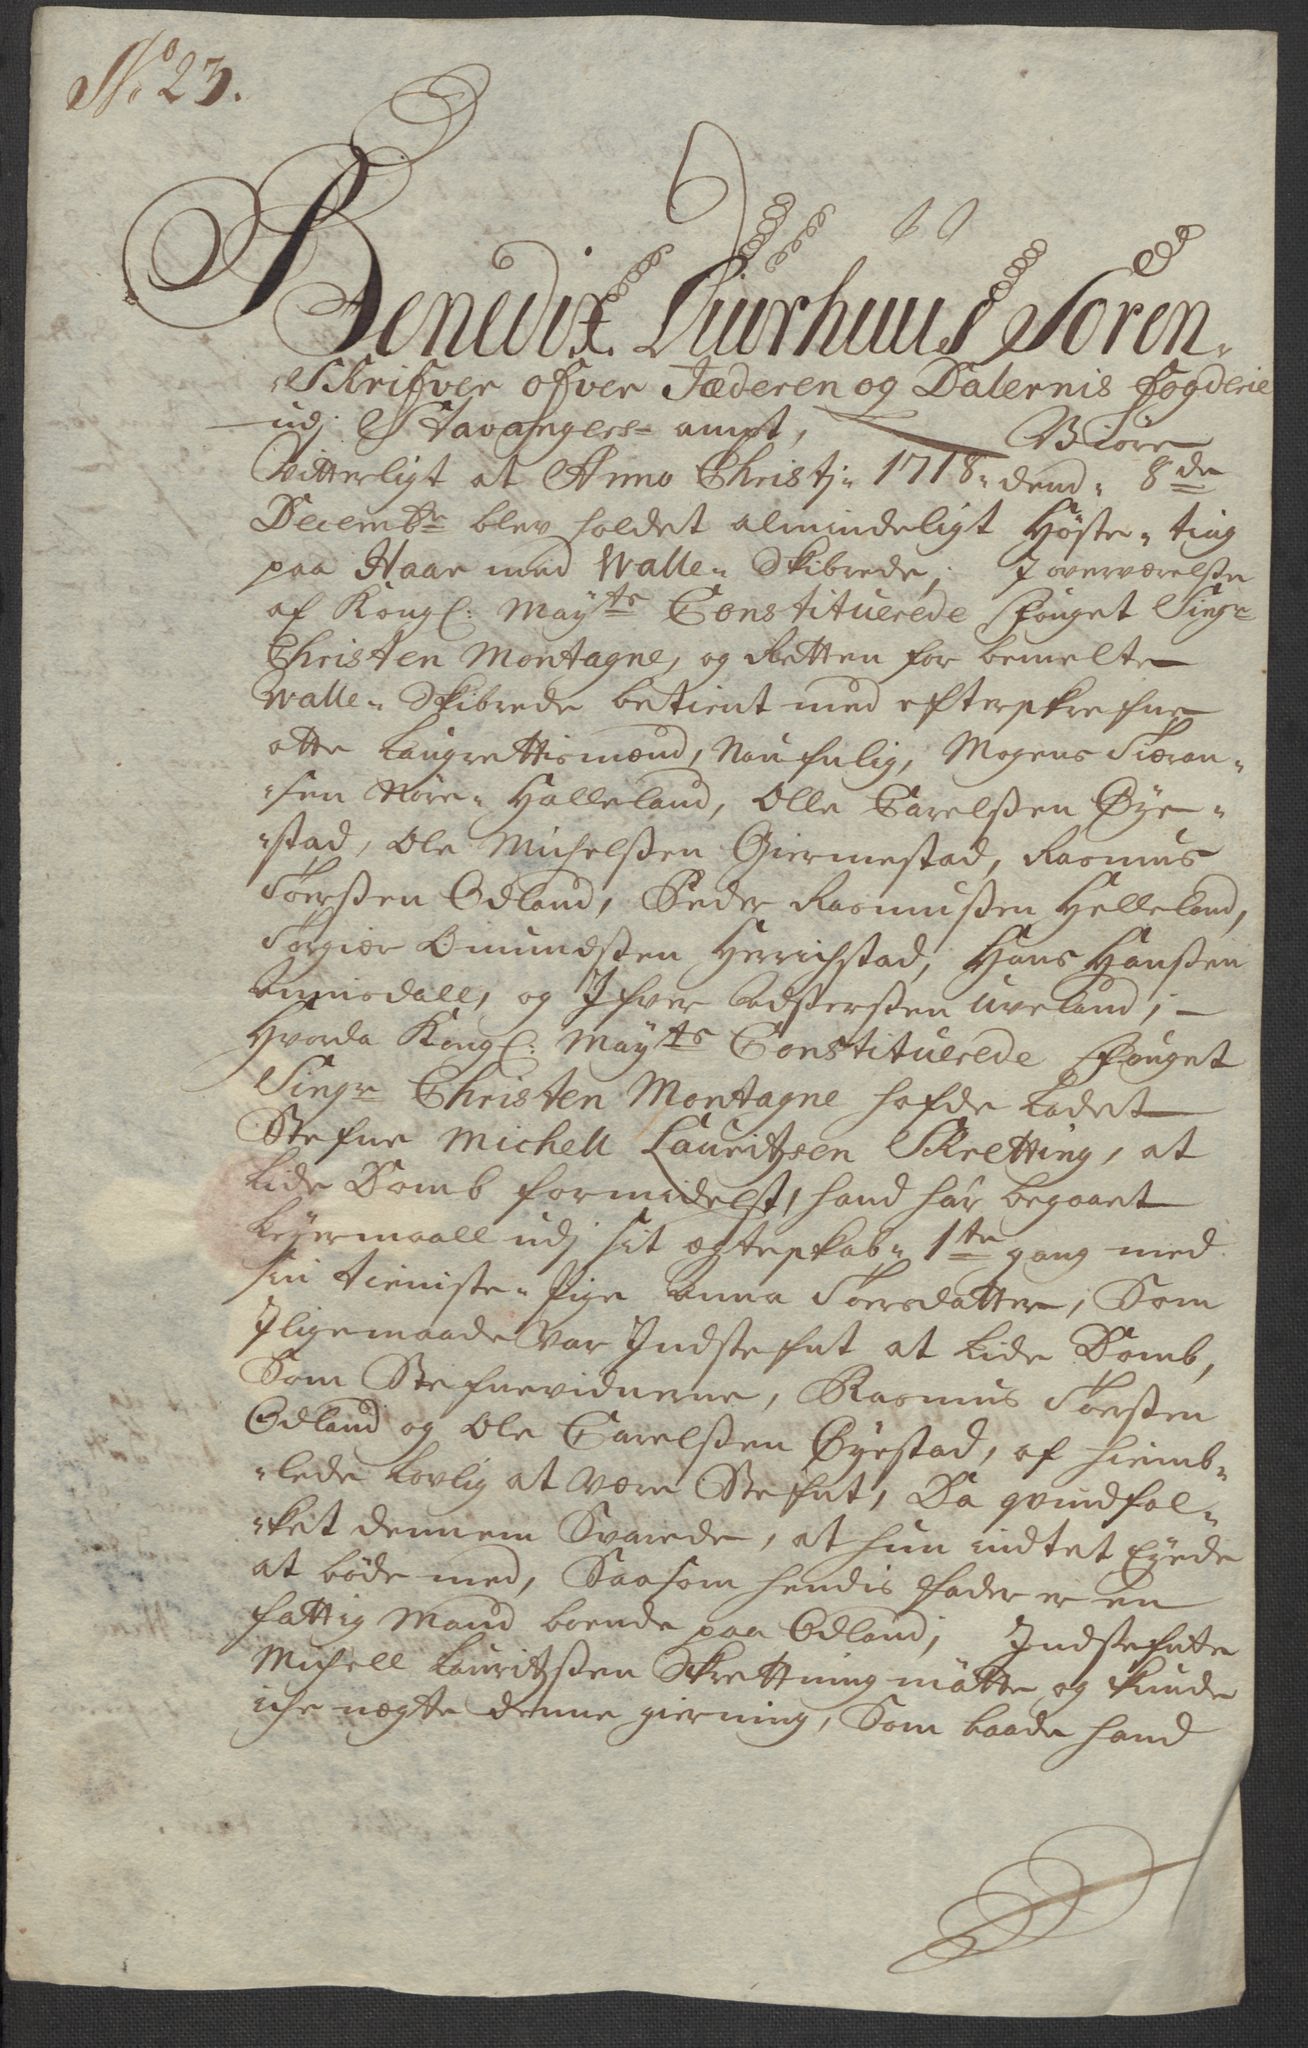 No 23.
Benedix Diurhuus Soren-
Skrifver ofver Jæderen og Dalernis fogderie
udj Stavangers- ampt, Giöre
Vitterligt at Anno Christj- 1718- dend- 8de
Decembr blev holdet almindeligt Höste- ting
paa Haar med Walle- Skibrede, J overværelsse
af Kongl: Mayts Constituerede Fouget Sing:r
Christen Montagne, og Retten for bemelte
Walle- Skibrede betient med efterskrefne
otte Laugrettismænd, Naufnlig, Mogens Sioran-
-sen Nöre- Halleland, Olle Carelssen Öye-
-stad, Ole Michelssen Giermestad, Rasmus
Toerssen Odland, Peder Rasmussen Helleland,
Torgier Omundssen Herrichstad, Hans Hanssen
Annisdall, og Jfver Adserssen Uveland; -
Hvorda Kongl: Mayts Constituerede Fouget
Singr Christen Montagne hafde Ladet
Stefne Michell Lauritzsen Skretting, at
Lide Domb formidelst, hand har begaaet
Leyermaall udj sit ægteskab- 1te gang med
sin tieniste- Pige Anna Toersdatter, Som
Jligemaade var Jndstefnt at Lide Domb,
Som Stefnevidnerne, Rasmus Toerssen
Odland og Ole Carelssen Öyestad, af hiemb-
-lede Lovlig at være Stefnt, Da qvindfol-
-ket dennem Svarede, at hun indtet Eyede
at böde med, Saasom hendis Fader er en
fattig Mand boende paa Odland; Jndstefnte
Michell Lauritzssen Skrettning mötte og kunde
iche nægte denne gierning, Som baade hand